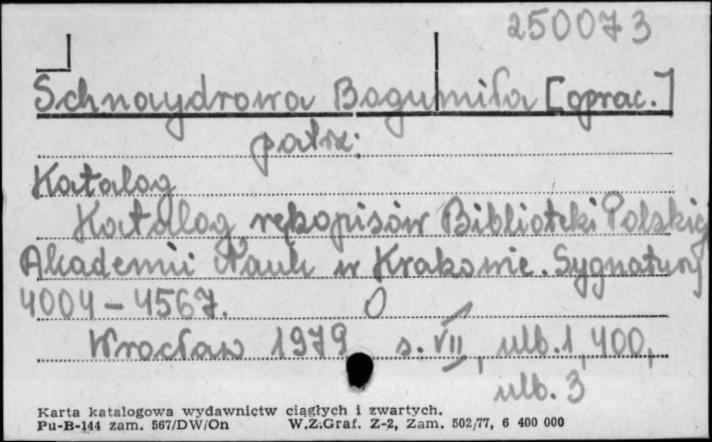 250073
Schnaydrowa Bogumiła [oprac.]
patrz:
Katalog
Katalog rękopisów Biblioteki Polskiej
Akademii Nauk w Krakowie. Sygnatury
4004 – 4567.
Wrocław 1979 s. VII, ulb. 1, 400,
ulb. 3
Karta katalogowa wydawnictw ciągłych i zwartych.
Pu-B-144 zam. 567/DW/On W.Z.Graf. Z-2, Zam. 502/77, 6 400 000